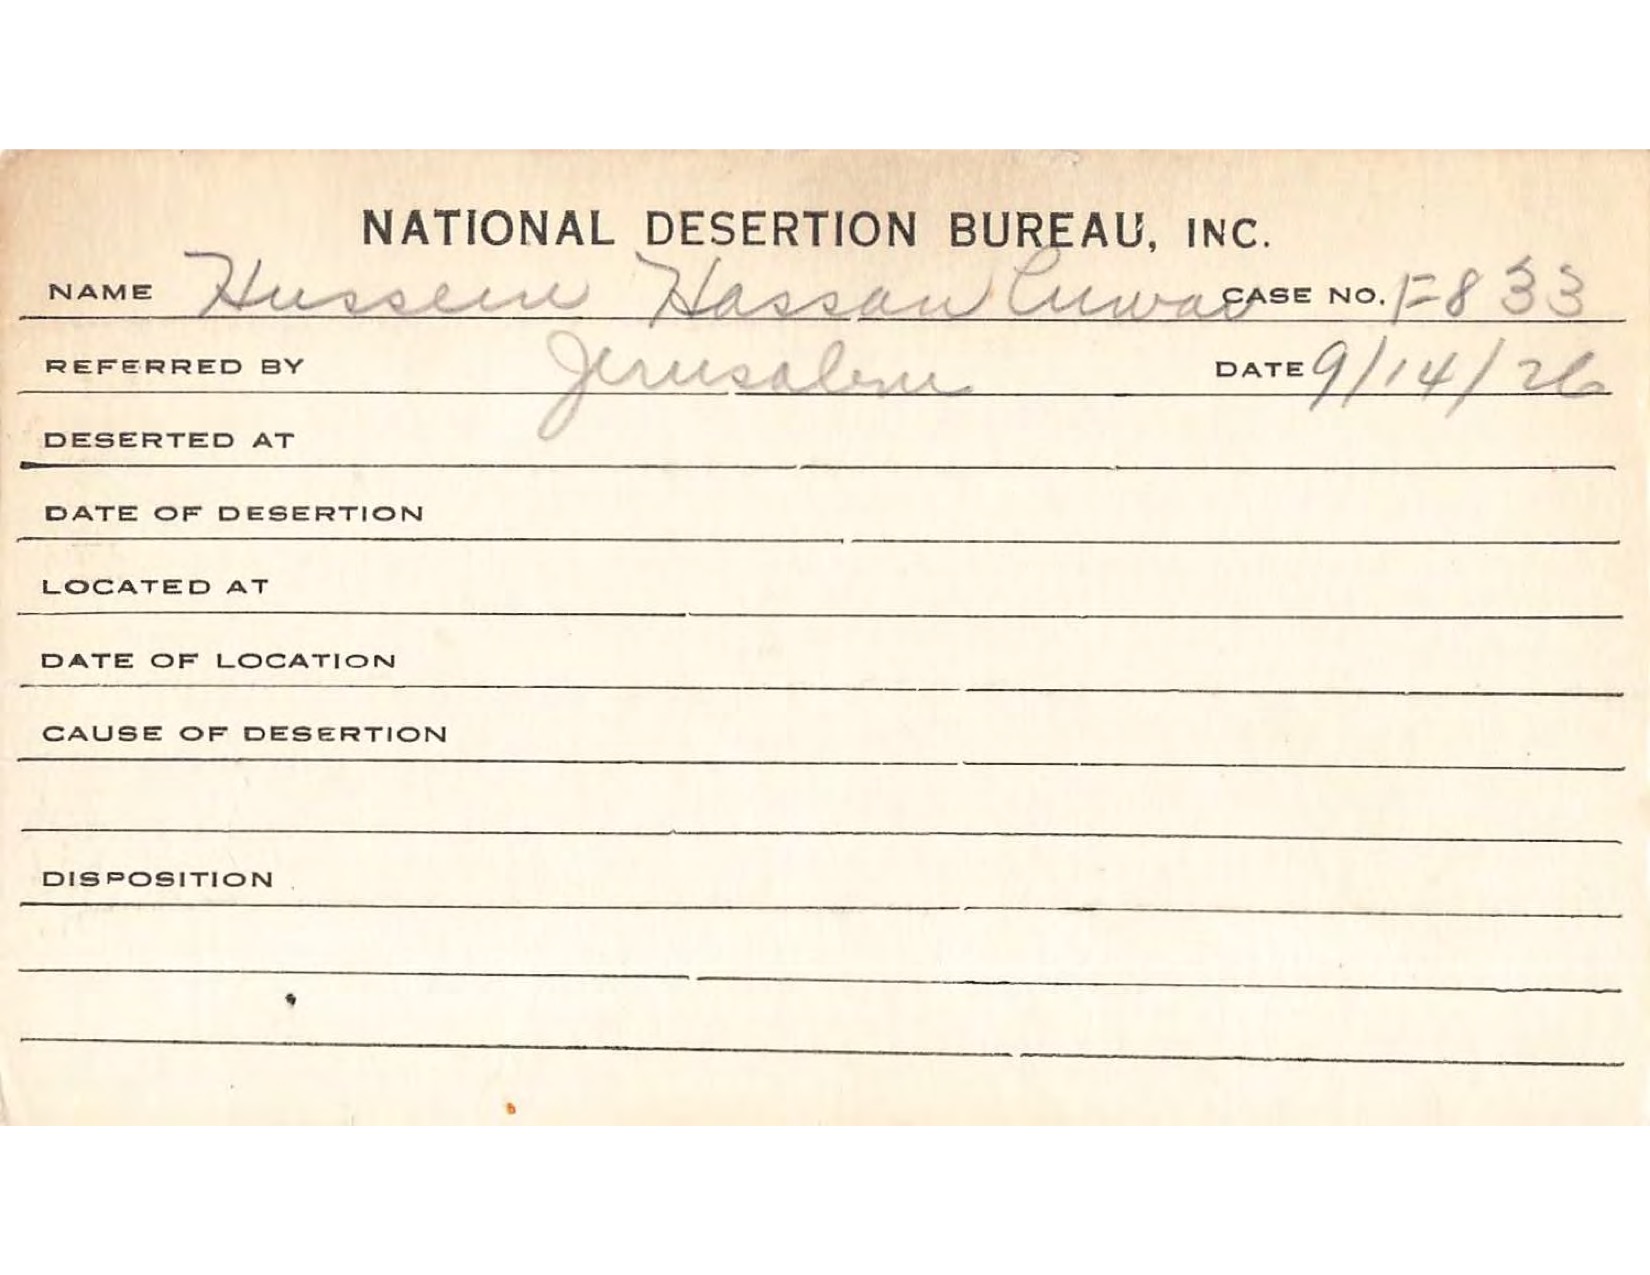 NATIONAL DESERTION BUREAU, INC.
NAME Hussein Hassan CASE NO. F-833
REFERRED BY Jerusalem DATE 9/14/26
DESERTED AT
DATE OF DESERTION
LOCATED AT
DATE OF LOCATION
CAUSE OF DESERTION
DISPOSITION